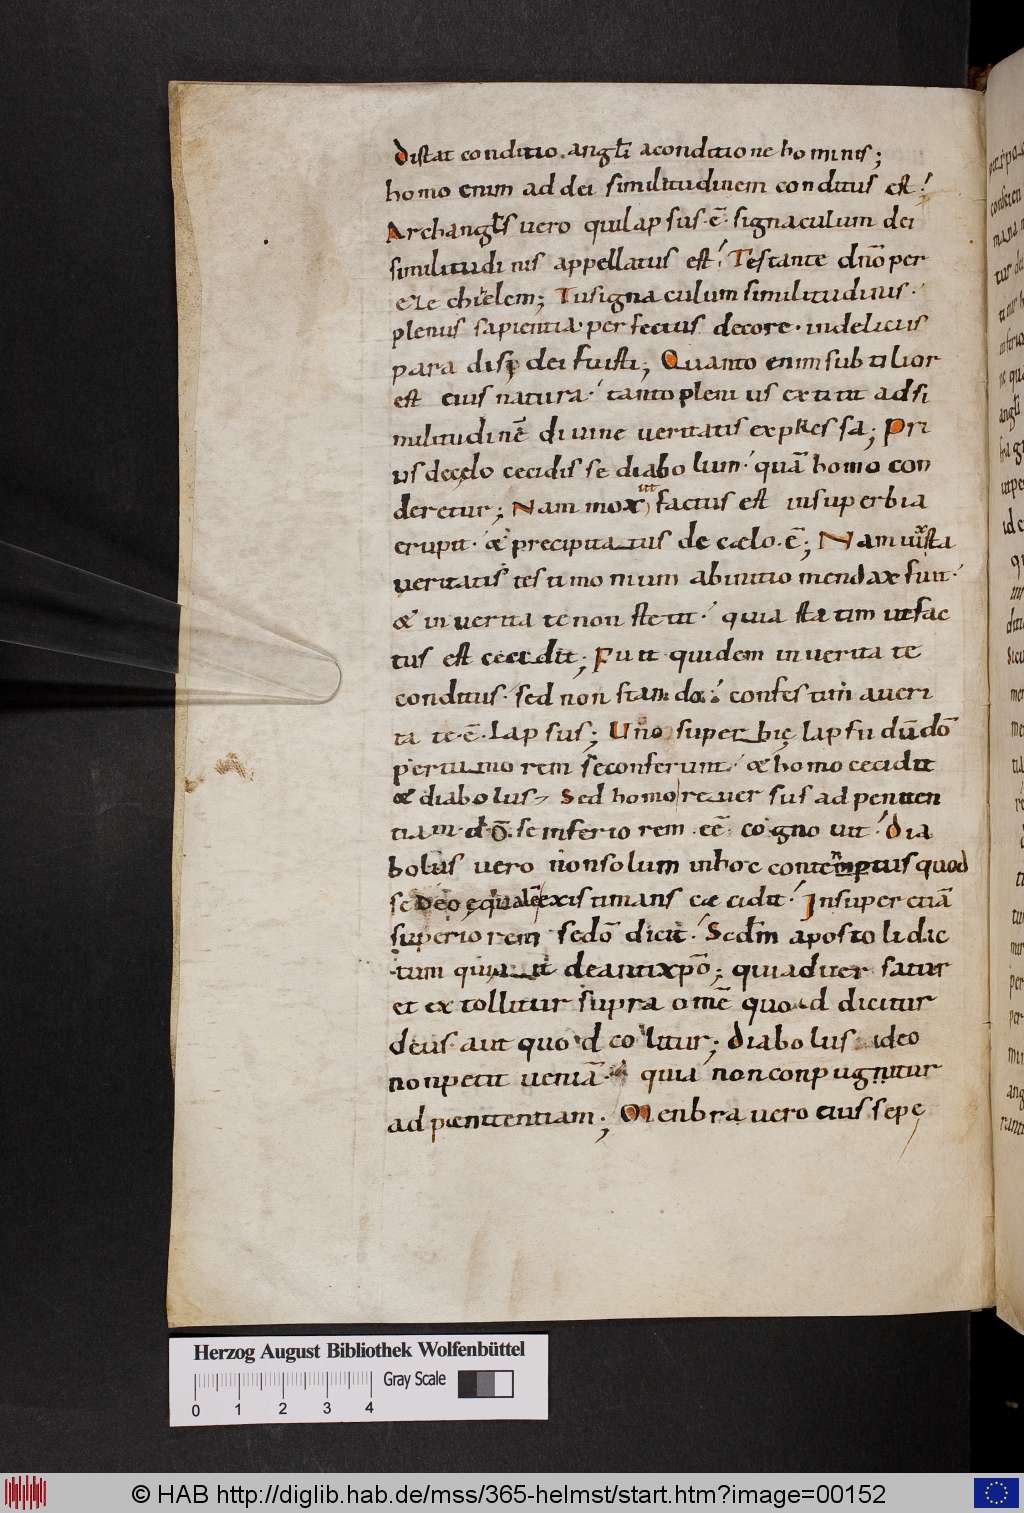 distat conditio angłi aconditione hominis;
homo enim ad dei similitudinem conditus est!
Archangłs vero qui lapsus·ē· signaculum dei
similitudinis appellatus est! Testante dn̄o per
ezechielem; Tu signaculum similitudinis·
plenus sapientia· perfectus decore· indeliciis
paradisi dei fuisti; Quanto enim subtilior
est eius natura· tanto plenius extitit adsi
militudinē divine veritatis expressa; Pri
us de cęlo cecidisse diabolum· quā homo con
deretur; Nam mox ut factus est insuperbia
erupit· & precipitatus de caelo·ē; Nam iuxta
veritatis testimonium abinitio mendax fuit·
& inveritate non stetit· quia statim ut fac
tus est cecidit; Fuit quidem inveritate
conditus· sed non stando· confestim averi
tate·ē·lapsus; Uno superbię lapsu dūdō
pertumorem se conferunt· & homo cecidit
& diabolus· Sed homo reversus ad peniten
tiam· dō· se inferiorem·eē· cognovit· dia
bolus vero nonsolum inhoc contemptus quod
se deo ęqualē existimans caecidit· Insuper etiā
superiorem se dō dicit· Sedm̄ apostoli dic
tum qui ait deantixpō; qui adversatur
et extollitur supra omē quod dicitur
deus aut quod colitur; diabolus ideo
non petit veniā· quia non conpugnitur
ad poenitentiam; Menbra vero eius sepę
Herzog August Bibliothek Wolfenbüttel
Gray Scale
0 1 2 3 4
© HAB http://diglib.hab.de/mss/365-helmst/start.htm?image=00152